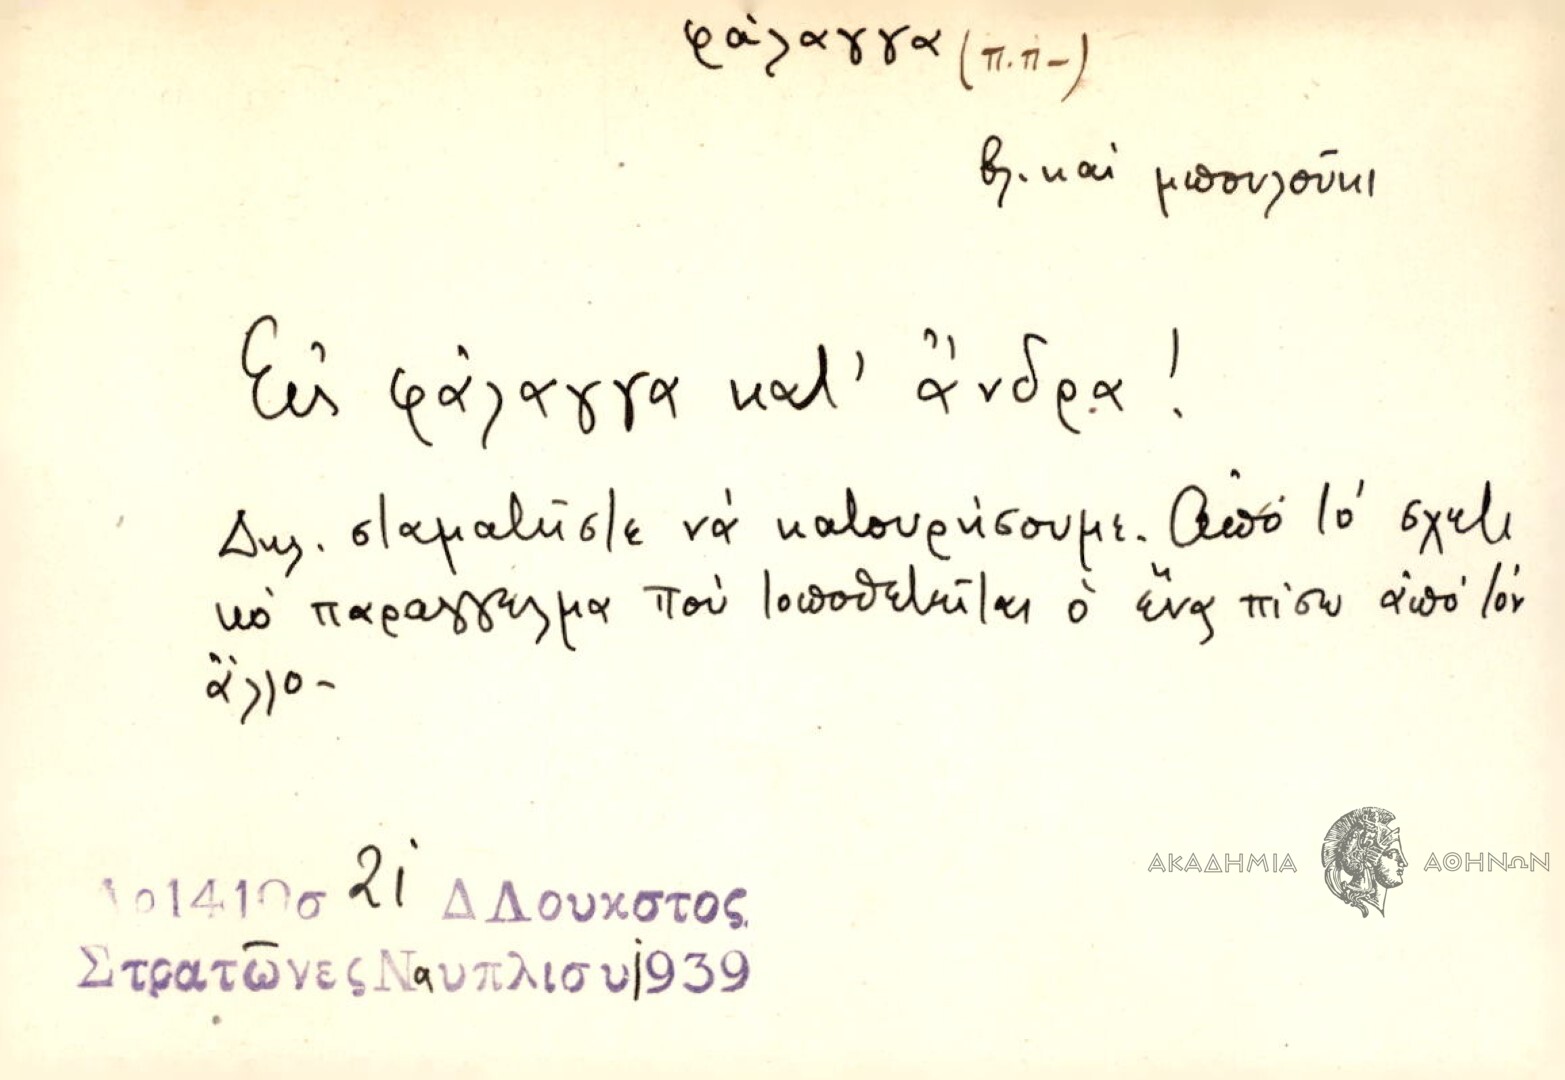 φάλαγγα (π.π-)
βλ. καί μπουλοῦκι
Εἰς φάλαγγα κατ' ἄνδρα!
Δηλ. σταματῆστε νά κατουρήσουμε. Ἀπό τό σχετι
κό παραγγελμα πού τοποθετεῖται ὁ ἕνας πίσω ἀπό τόν
ἄλλο-
1410 σ 21 Δ Λουκοτος
Στρατῶνες Ναυπλιου 1939
ΑΚΑΔΗΜΙΑ ΑΘΗΝΩΝ